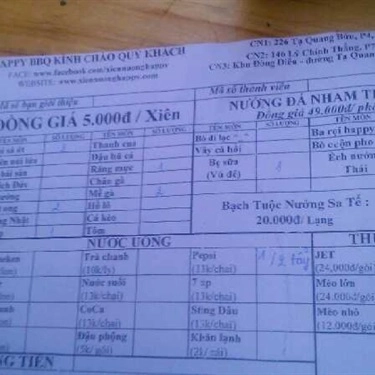 APPY BBQ KÍNH CHÀO QUÝ KHÁCH
FACE: www.facebook.com/xiennuonghappy
WEBSITE: www.xiennuonghappy.com
CN1: 226 Tạ Quang Bửu, P4,
CN2: 146 Lý Chính Thắng, P7,
CN3: Khu Đồng Diều - đường Tạ Quang
Mã số bạn giới thiệu
Mã số thành viên
ĐỒNG GIÁ 5.000đ / Xiên
NƯỚNG ĐÁ NHAM T
Đồng giá 49.000đ/ph
SỐ LƯỢNG TÊN MÓN SỐ LƯỢNG
TÊN MÓN SỐ LƯỢNG TÊN MÓN
Thanh cua
Đậu hũ cá
Răng mực 1
Chân gà
Mề gà 2
Hồ lô
Cá kèo
Tôm
Bò đi lạc
Vảy cá hải
Bẹ sữa
(Vú dê)
Ba rọi happ
Bò cuộn pho
Ếch nướn
Thái
Bạch Tuộc Nướng Sa Tế :
20.000đ/ Lạng
NƯỚC UỐNG
Trà chanh
(10k/ly)
Nước suối
(13k/chai)
CoCa
(13k/chai)
Đậu phộng
(5k/ gói)
Pepsi
(13k/chai)
7 up
(13k/chai)
Sting Dâu
(13k/chai)
Khăn lạnh
(2k/ cái)
TH
JET
(24,000đ/gói
Mèo lớn
(24.000đ/gói
Mèo nhỏ
(12.000đ/gói
NG TIỀN